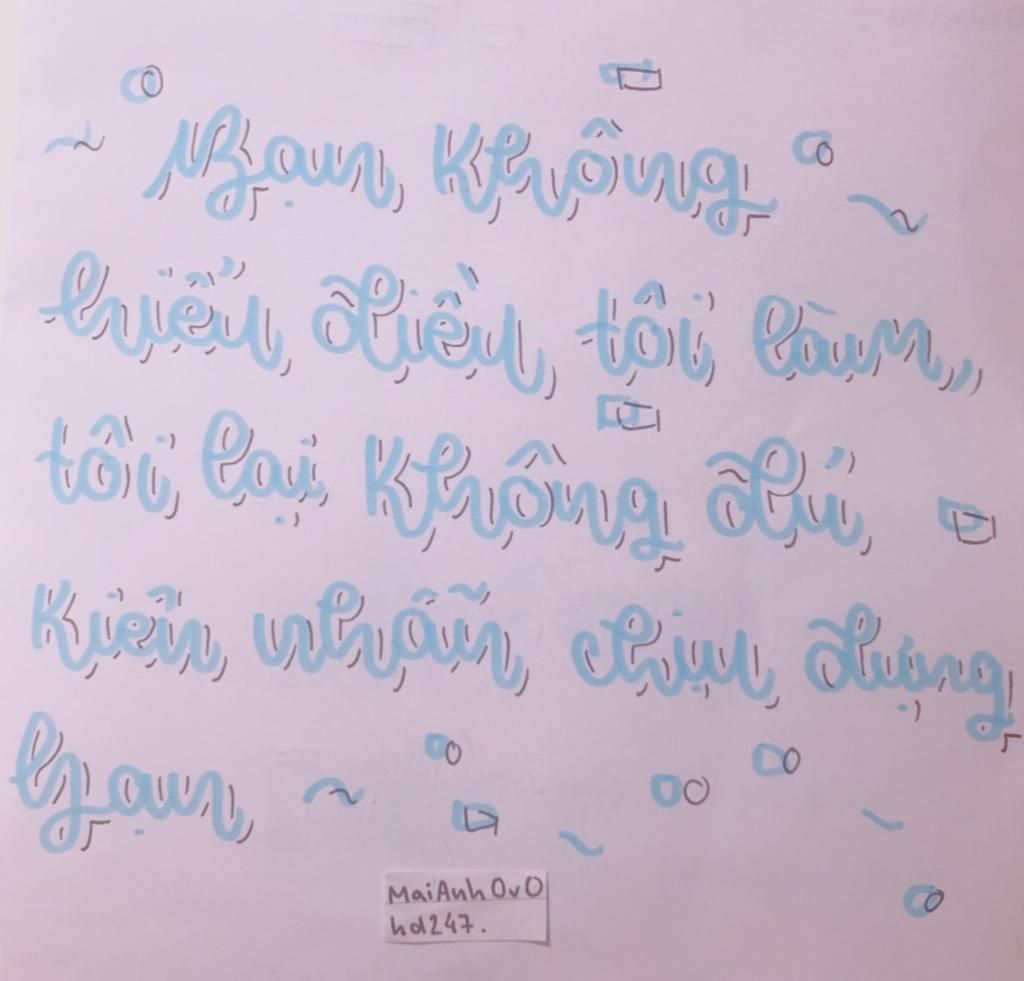 Bạn không
hiểu điều tôi làm,
tôi lại không đủ
kiên nhẫn chịu đựng
bạn
MaiAnh0v0
hd247.